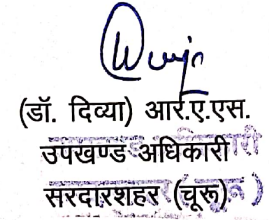 (डॉ. दिव्या) आर.ए.एस.
उपखण्ड अधिकारी
सरदारशहर (चूरू)